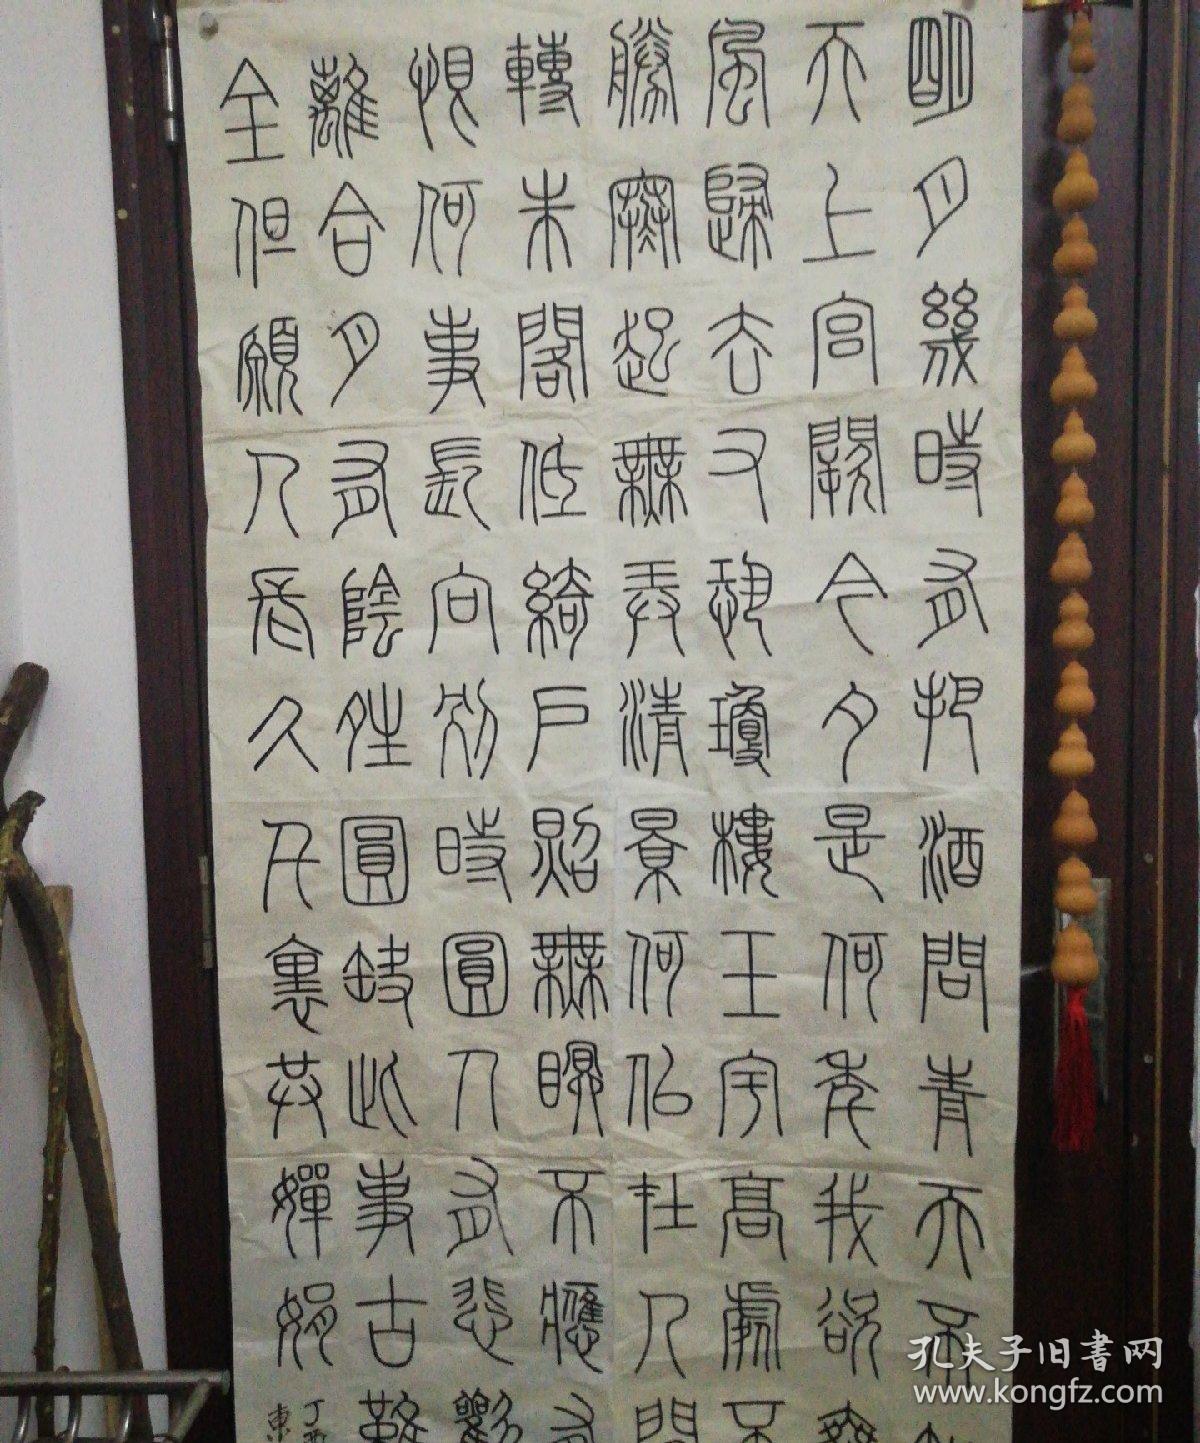 明月幾時有把酒問青天不知
天上宮闕今夕是何年我欲乘
風歸去又恐瓊樓玉宇高處不
勝寒起舞弄清景何似在人間
轉朱閣低綺戶照無眠不應有
恨何事長向別時圓人有悲歡
離合月有陰晴圓缺此事古難
全但願人長久千裏共嬋娟
丁酉
東
孔夫子旧書网
www.kongfz.com